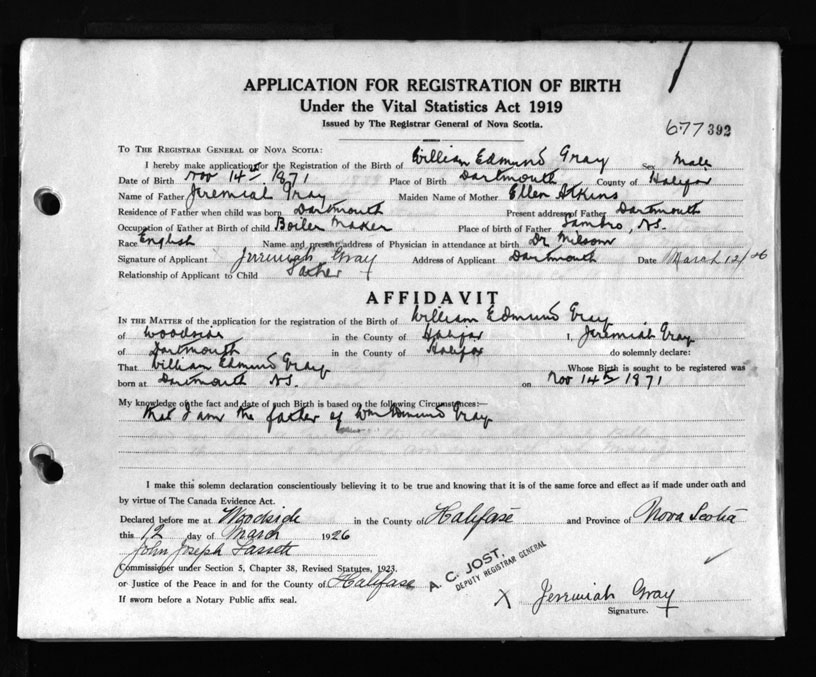 APPLICATION FOR REGISTRATION OF BIRTH
Under the Vital Statistics Act 1919
Issued by The Registrar General of Nova Scotia.
677 392
TO THE REGISTRAR GENERAL OF NOVA SCOTIA:
I hereby make application for the Registration of the Birth of William Edmund Gray Sex Male
Date of Birth Nov 14th 1871 Place of Birth Dartmouth County of Halifax
Name of Father Jeremiah Gray Maiden Name of Mother Ellen Atkins
Residence of Father when child was born Dartmouth Present address of Father Dartmouth
Occupation of Father at Birth of child Boiler Maker Place of birth of Father Sambro, NS.
Race English Name and present address of Physician in attendance at birth Dr Milsom
Signature of Applicant Jeremiah Gray Address of Applicant Dartmouth Date March 12/26
Relationship of Applicant to Child Father
AFFIDAVIT
IN THE MATTER of the application for the registration of the Birth of William Edmund Gray
of Woodside in the County of Halifax I, Jeremiah Gray
of Dartmouth in the County of Halifax do solemnly declare:
That William Edmund Gray Whose Birth is sought to be registered was
born at Dartmouth NS. on Nov 14th 1871
My knowledge of the fact and date of such Birth is based on the following Circumstances:—
that I am the father of Wm Edmund Gray
I make this solemn declaration conscientiously believing it to be true and knowing that it is of the same force and effect as if made under oath and
by virtue of The Canada Evidence Act.
Declared before me at Woodside in the County of Halifax and Province of Nova Scotia
this 12 day of March 1926
John Joseph
Commissioner under Section 5, Chapter 38, Revised Statutes, 1923.
or Justice of the Peace in and for the County of Halifax
If sworn before a Notary Public affix seal.
A. C. JOST,
DEPUTY REGISTRAR GENERAL
X Jeremiah Gray
Signature.